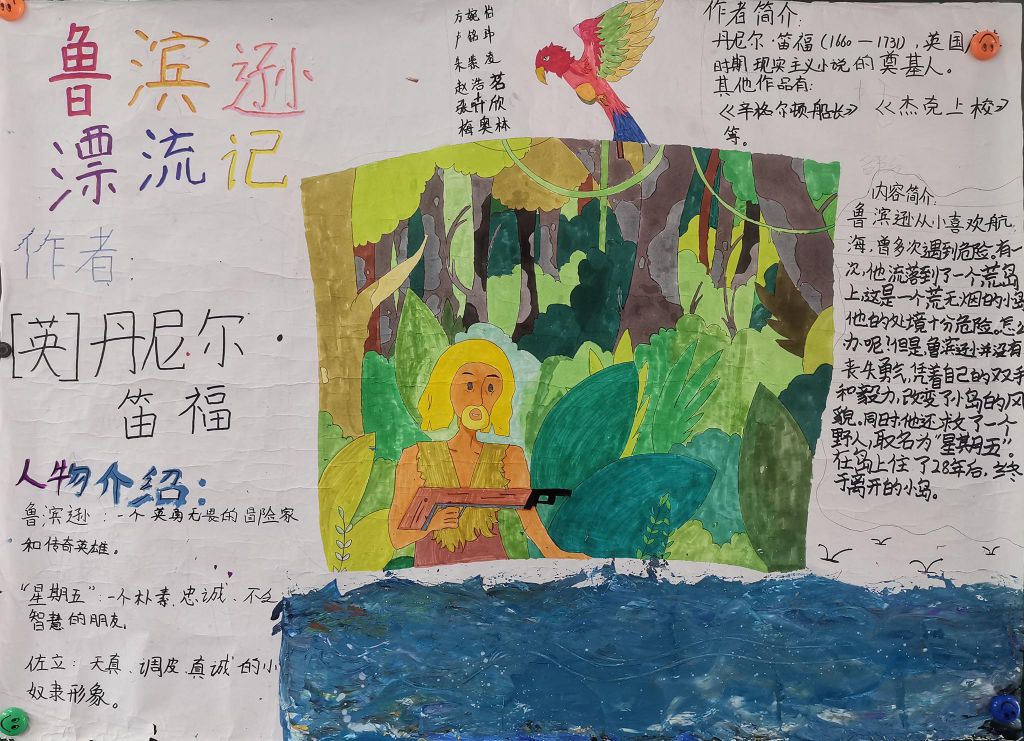 鲁滨逊
漂流记
作者:
[英]丹尼尔·
笛福
人物介绍:
鲁滨逊:一个英勇无畏的冒险家
和传奇英雄。
"星期五":一个朴素、忠诚、不乏
智慧的朋友。
佐立:天真、调皮、真诚的小
奴隶形象。
方婉怡
卢铭玮
朱
赵浩茗
张叶欣
梅奥林
作者简介:
丹尼尔·笛福(1660—1731),英国
时期现实主义小说的奠基人。
其他作品有:
《辛格尔顿船长》《杰克上校》
等。
内容简介:
鲁滨逊从小喜欢航
海,曾多次遇到危险。有一
次,他流落到了一个荒岛
上,这是一个荒无烟的小岛
他的处境十分危险。怎么
办呢!但是,鲁滨逊并没有
丧失勇气,凭着自己的双手
和毅力,改变了小岛的风
貌。同时,他还求救了一个
野人,取名为"星期五"。
在岛上住了28年后,终
于离开的小岛。